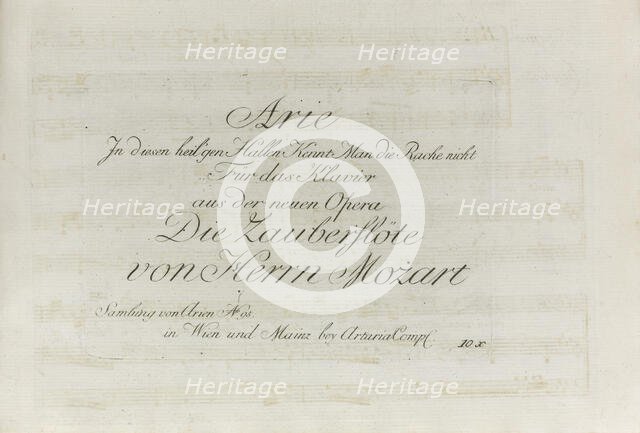 Arie
In diesen heil'gen Hallen Kennt Man die Rache nicht
Für das Klavier
aus der neuen Opera
Die Zauberflöte
von Herrn Mozart
Samlung von Arien
in Wien und Mainz bey Artaria Comp
10 x
Heritage Heritage Heritage
Heritage Heritage Heritage
Heritage Heritage Heritage
©